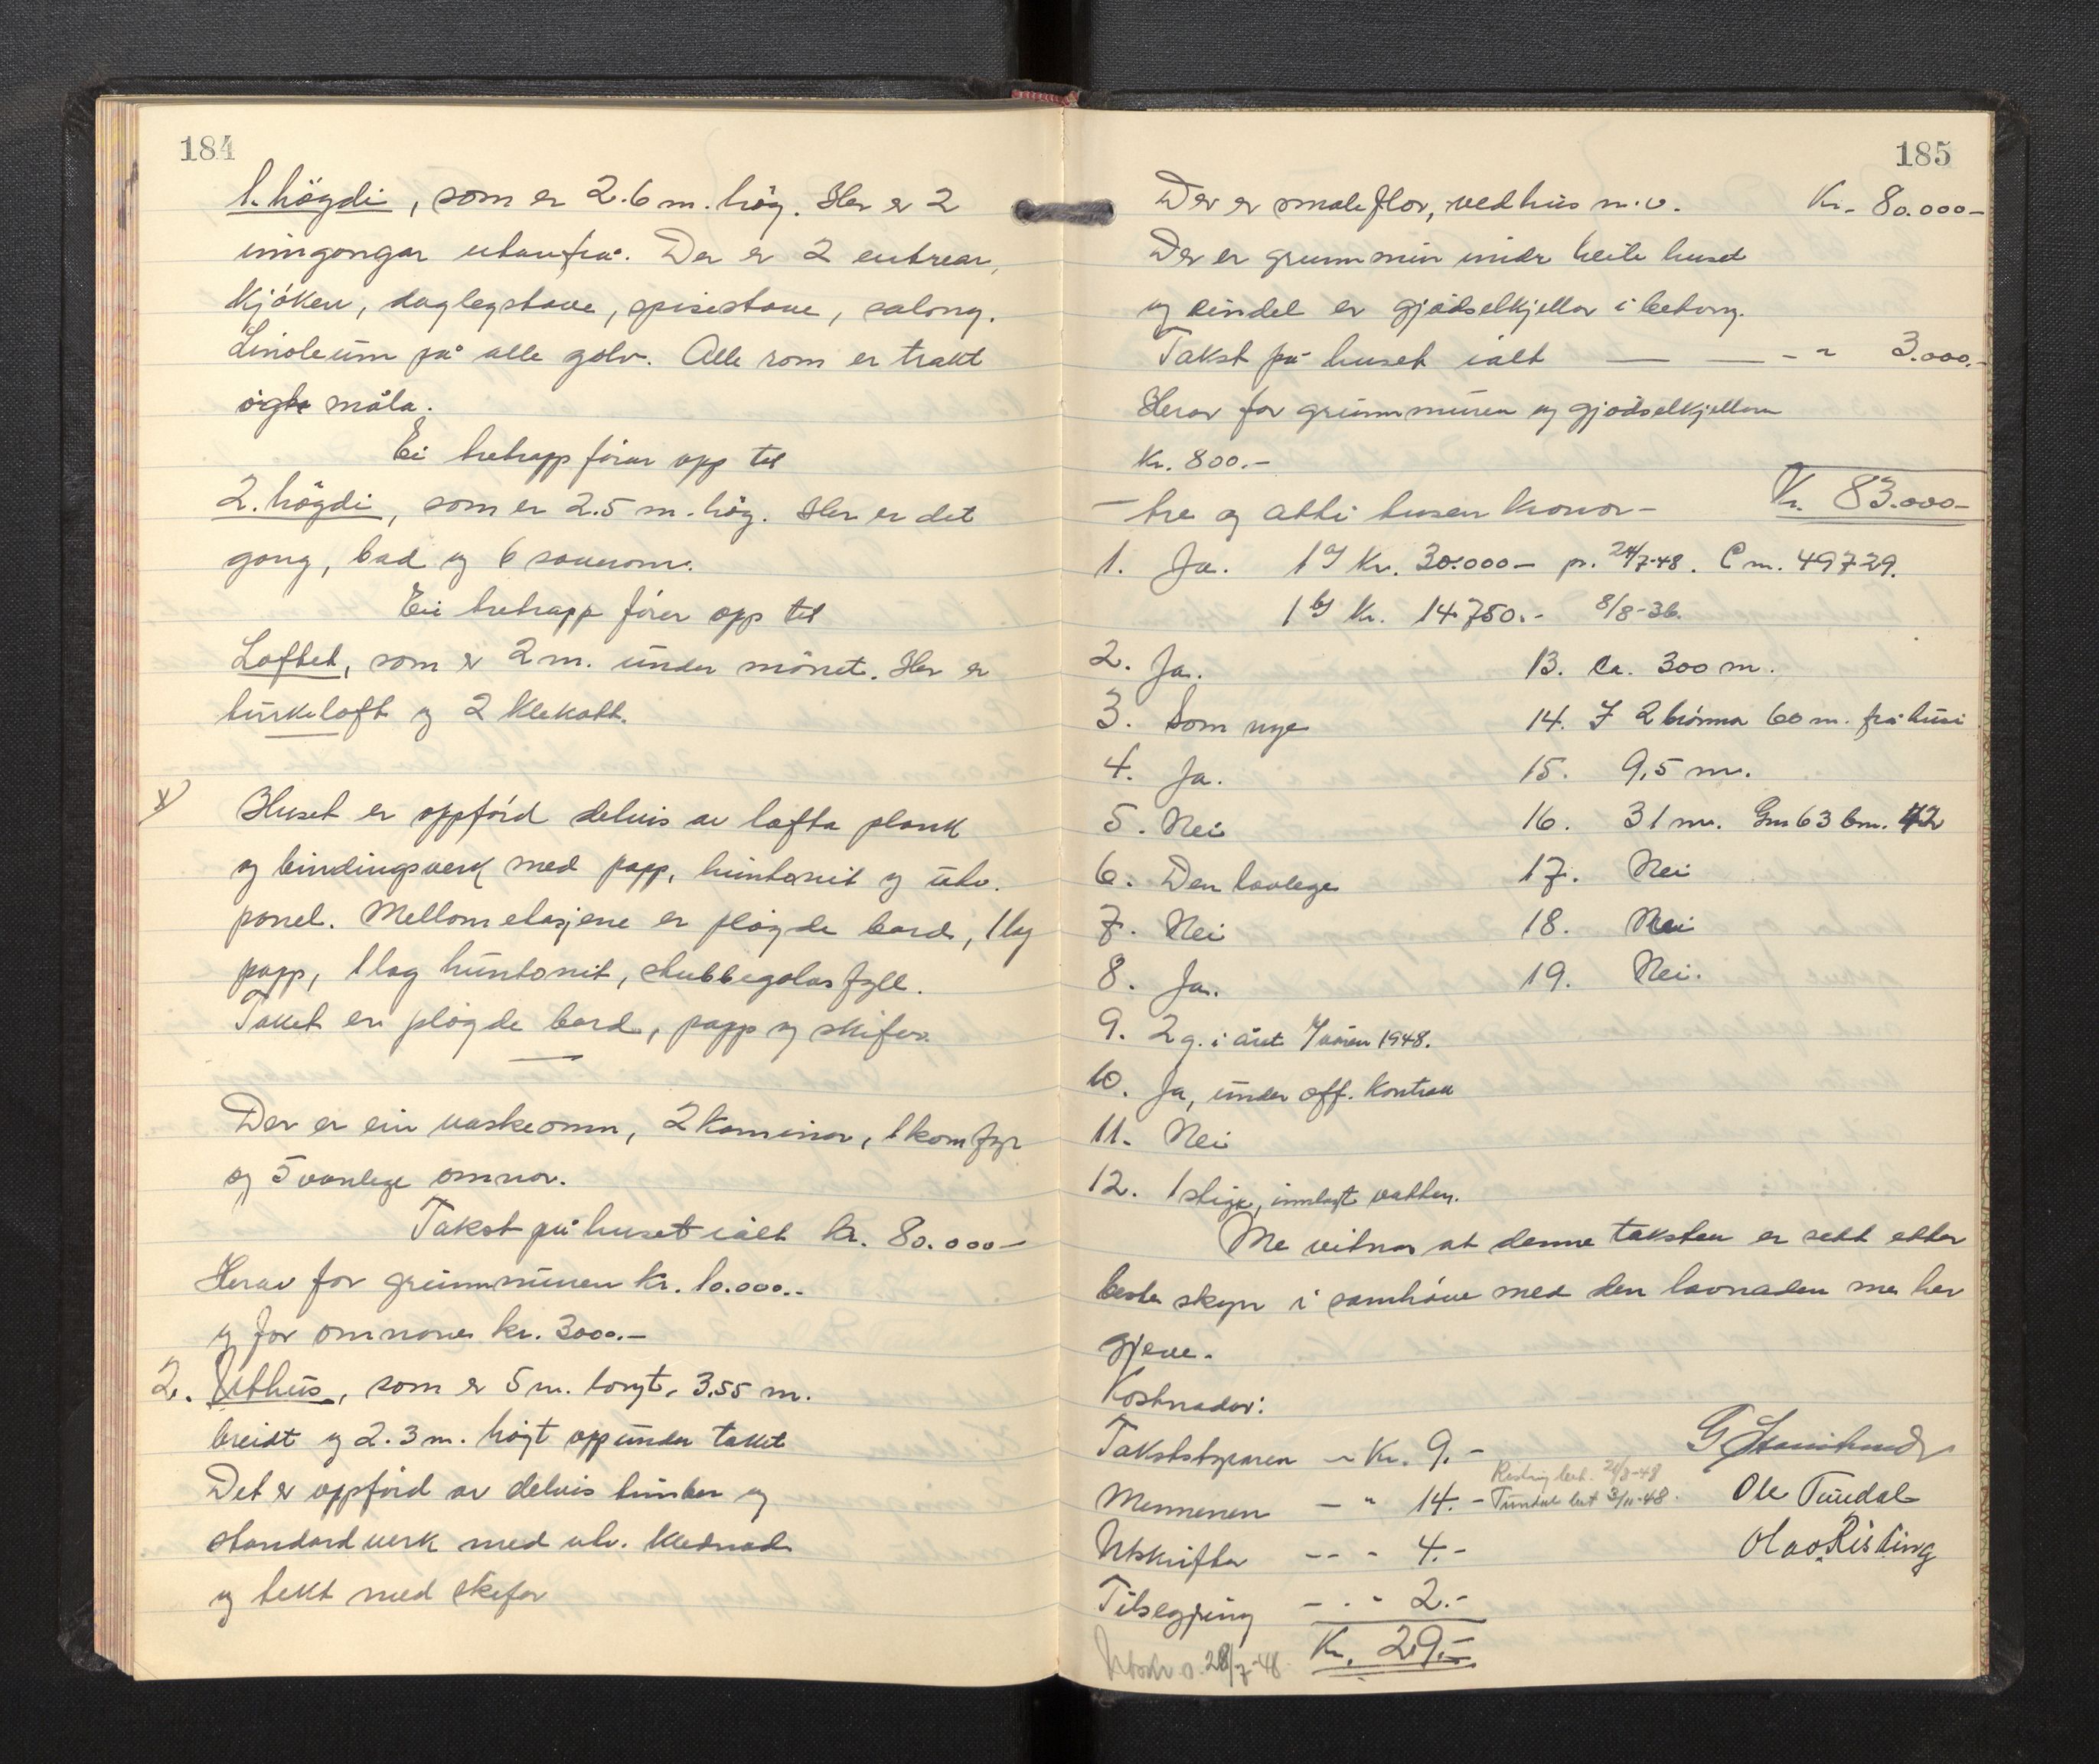 184
1. högdi, som er 2.6 m. hög. Her er 2
inngongar utanfrå. Der er 2 entrear,
kjöken, daglegstove, spisestove, salong.
Linoleum på alle golv. Alle rom er trekt
og måla.
Ei tretrapp förer opp til
2. högdi, som er 2.5 m. hög. Her er det
gong, bad og 6 soverom.
Ei tretrapp förer opp til
Loftet, som er 2 m. under mönet. Her er
turkeloft og 2 klekott.
x) Huset er oppförd delvis av lafta plank
og bindingsverk med papp, huntonit og utv.
panel. Mellom etasjene er plögde bord, 1 lag
papp, 1 lag huntonit, stubbegolvsfyll.
Taket er plögde bord, papp og skifer.
Der er ein vaskeomn, 2 kaminar, 1 komfyr
og 5 vanlege omnar.
Takst på huset ialt kr. 80.000-
Herav for grunnmuren kr. 10.000.-
og for omnane kr. 3000.-
2. Uthus, som er 5 m. langt, 3.55 m.
breidt og 2.3 m. högt opp under taket
Det er oppförd av delvis timber og
standardverk med utv. klednad
og tekt med skifer
185
Der er smaleflor, vedhus m.v. Kr. 80.000-
Der er grunnmur under heile huset
og eindel er gjödselkjellar i betong.
Takst på huset ialt — — - " 3.000.-
Herav for grunnmuren og gjödselkjellaren
Kr. 800.-
- tre og åtti tusen kronor - Kr. 83.000-
1. Ja. 1 a) Kr. 30.000- pr. 24/7-48. C m. 49729.
1 b) Kr. 14750.- 8/8-36.
2. Ja. 13. ca. 300 m.
3. Som nye 14. I 2 brönnar 60 m. frå husi
4. Ja. 15. 9,5 m.
5. Nei 16. 31 m. Gn 63 bn. 42
6. Den lovlege 17. Nei
7. Nei 18. Nei
8. Ja. 19. Nei.
9. 2 g. i året. I våren 1948.
10. Ja, under off. kontroll
11. Nei
12. 1 stige, innlagt vatten.
Me vitnar at denne taksten er sett etter
beste skyn i samhöve med den lovnaden me har
gjeve.
Kostnader:
Takstskyraren - Kr. 9.- G
Mennenen - " 14. - Risting bet. 28/8-48 Ole Tundal
Tundal bet 3/11-48.
Utskrifter - - " 4.- Olav Risting
Tilsegjing - . " 2.-
Kr. 29.-
Utskr. s. 28/7-48